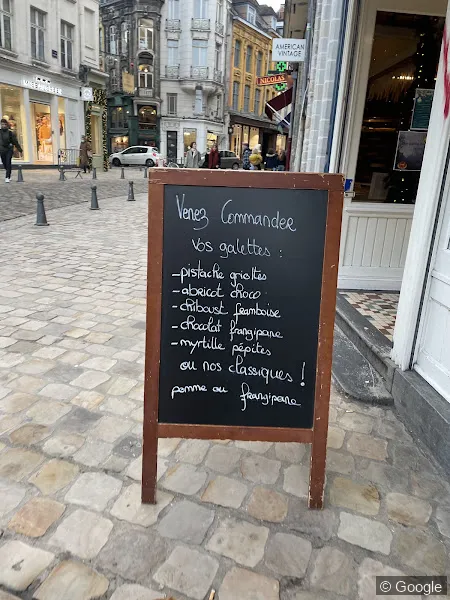 AMERICAN
VINTAGE
NICOLAS
Venez Commander
vos galettes :
-pistache griottes
-abricot choco
-chiboust framboise
-chocolat frangipane
-myrtille pépites
ou nos classiques !
pomme ou frangipane
© Google